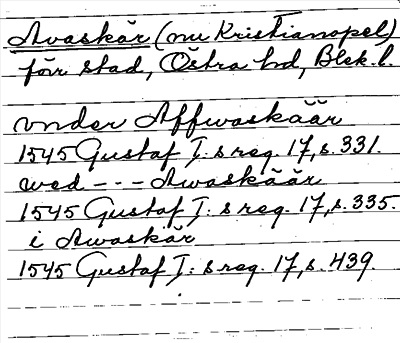 Avaskär (nu Kristianopel)
förr stad, Östra hd, Blek. l.
vnder Affwaskäär
1545 Gustaf I: s reg. 17, s. 331.
wed --- Awaskäär
1545 Gustaf I: s reg. 17, s. 335.
i Awaskär
1545 Gustaf I: s reg. 17, s. 439.